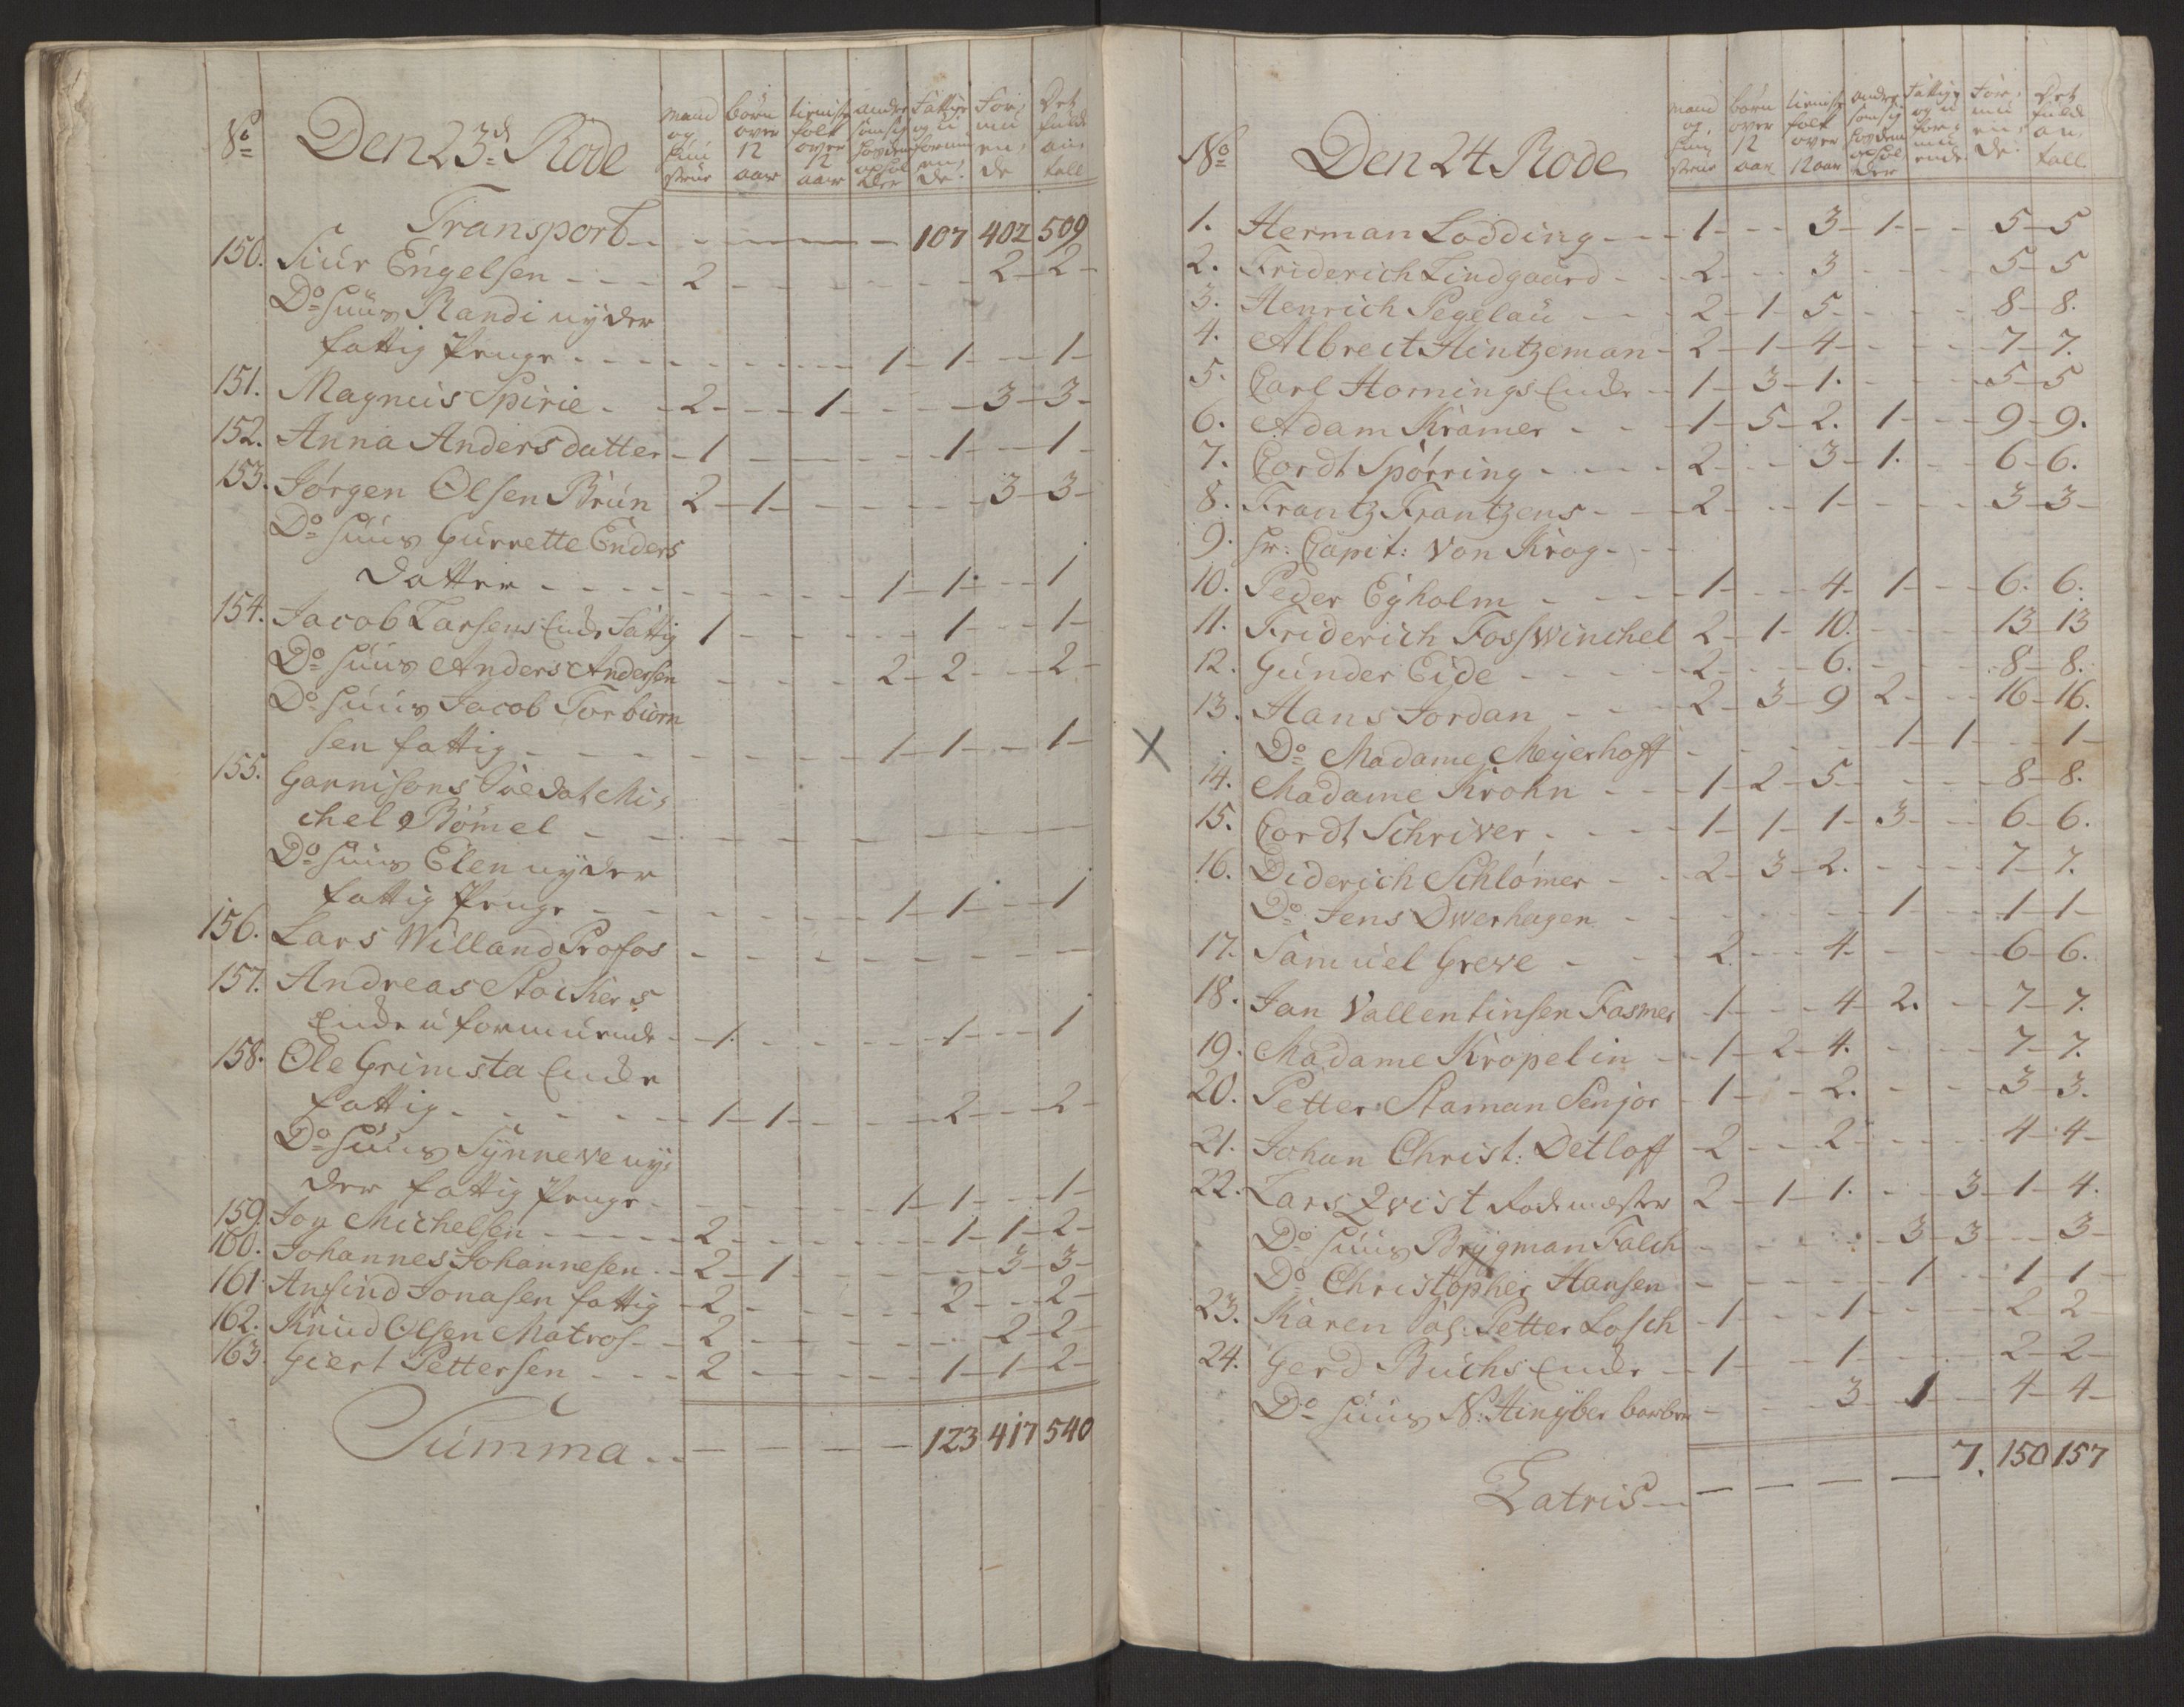 No Den 23d Rode
mand og hustrue
børn over 12 aar
tieniste folk over 12 aar
andre som sig hos dem opholder
Fattige og uformuende
Formuende
Det fulde antall
Transport - - - - 107 402 509
150. Siur Engelsen - - - 2 - - - - - 2 - 2 -
Do huus Randi nyder
fattig Penge - - - - - 1 - 1 - - 1 -
151. Magnus Spirie - - 2 - - 1 - - - 3 - 3 -
152. Anna Andersdatter - 1 - - - - 1 - - 1 -
153. Jørgen Olsen Brun 2 - 1 - - - - 3 - 3 -
Do huus Gurrette Enders
datter - - - - - 1 - 1 - - 1
154. Jacob Larsens Enke fattig 1 - - - - 1 - - 1 -
Do huus Anders Andersen - - - 2 - 2 - - 2 -
Do huus Jacob Torbiørn
sen fattig - - - - - 1 - 1 - - 1 -
155. Garnisons Soldat Mi,
chel Bömel - - - - - - -
Do huus Elen nyder
fattig Penge - - - - - 1 - 1 - - 1
156. Lars Willand Profos - - - - - - -
157. Andreas Stockers
Enke uformuende - 1. - - - - 1 - - 1
158. Ole Grimsta Enke
fattig - - - - 1 - 1 - - - 2 - - 2 -
Do huus Synneve ny,
der fattig Penge - - - - 1 - 1 - - 1 -
159. Jon Michelsen - - - - 2 - - - - 1 - 1 - 2 -
160. Johannes Johannesen - - 2 - 1 - - - - 3 - 3 -
161 Ansind Jonasen fattig - 2 - - - - 2 - - 2 -
162. Knud Olsen Matros - - 2 - - - - - 2 - 2 -
163. Giert Pettersen - - - 2 - - - - 1 - 1 - 2 -
Summa - - - - - - 123 417 540
No Den 24 Rode
mand og hustrue
børn over 12 aar
tieniste folk over 12 aar
andre som sig hos dem opholder
Fattige og uformuende
Formuende
Det fulde antall
1. Herman Lodding - - - 1 - - 3 - 1 - - 5 - 5
2. Friderich Lindgaard - - 2 - - 3 - - - 5 - 5
3. Henrich Pegelau - - - 2 - 1 - 5 - - - 8 - 8.
4. Albrect Hintzeman - 2 - 1 - 4 - - - 7 - 7.
5. Carl Hornings Enke - - 1 - 3 - 1. - - - 5 - 5
6. Adam Kramer - - - 1 - 5 - 2. 1 - - 9 - 9.
7. Cordt Spørring - - - - 2 - - 3 - 1. - 6 - 6.
8. Frantz Frantzens - - - 2 - - 1 - - - 3 - 3 -
9. Hr: Capit: von Krog - - -
10. Peder Egholm - - - 1 - - 4 - 1 - - 6. 6.
11. Friderich Fosswinchel 2 - 1 - 10. - - - 13 - 13
12. Gunder Eide - - - - 2 - - 6. - - - 8 - 8.
13. Hans Jordan - - - 2 - 3 - 9 2 - - 16 - 16.
X Do Madame Meyerhoff - - - - 1 - 1 - - 1 -
14. Madame Krohn - - - 1 - 2 - 5 - - - 8 - 8.
15. Cordt Schriver - - - - 1 - 1 - 1 - 3 - - 6 - 6.
16. Diderich Schlömer - - - 2 - 3 - 2. - - - 7 - 7.
Do Jens Dwerhagen - - - - 1 - - 1 - 1 -
17. Samuel Greve - - - 2. - - 4 - - - 6 - 6.
18. Jan Vallentinsen Fasmer - 1 - - 4 - 2. - - 7 - 7.
19. Madame Kropelin - - 1 - 2 - 4. - - - 7 - 7.
20. Petter Staman Senjor - 1 - - 2. - - - 3 - 3.
21. Johan Christ: Detloff - 2 - - 2 - - - 4 - 4 -
22. Lars Qvist Rodemester 2 - 1 - 1. - - 3 - 1 - 4.
Do huus Brygman Falch - - - - 3 - 3 - - 3 -
Do Christopher Hansen - - - - 1 - - 1 - 1 -
23. Karen Sal: Petter Losch - 1 - - 1 - - - 2 - 2
24. Gerd Buchs Enke - - 1 - - 1 - - - 2 - 2 -
Do huus N: Hinyber - - - 3 - 1 - - 4 - 4 -
Latris - - - - - 7. 150 157